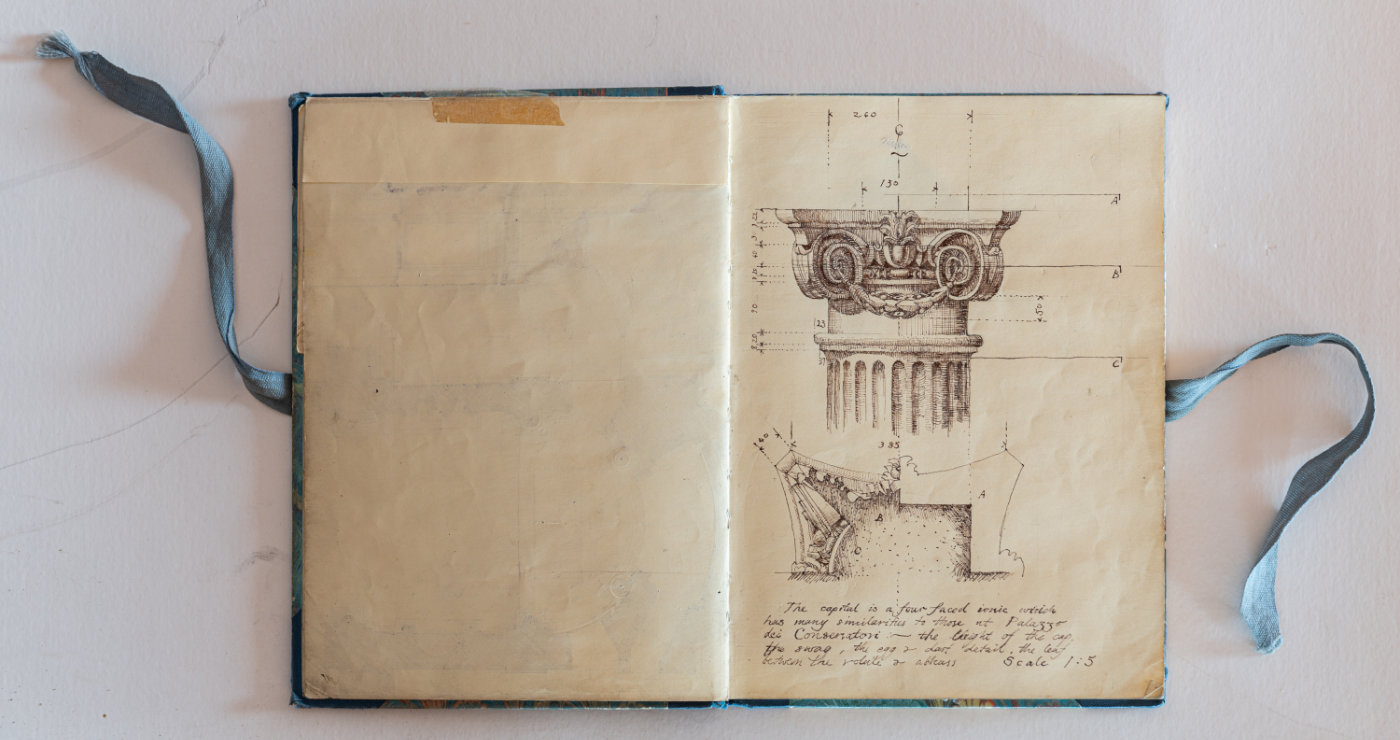 260
130
A
B
50
23
C
385
A
B
C
The capital is a four faced ionic which
has many similarities to those at Palazzo
dei Conservatori — the height of the cap,
the swag, the egg & dart detail, the leaf
between the volute & abacus Scale 1:5